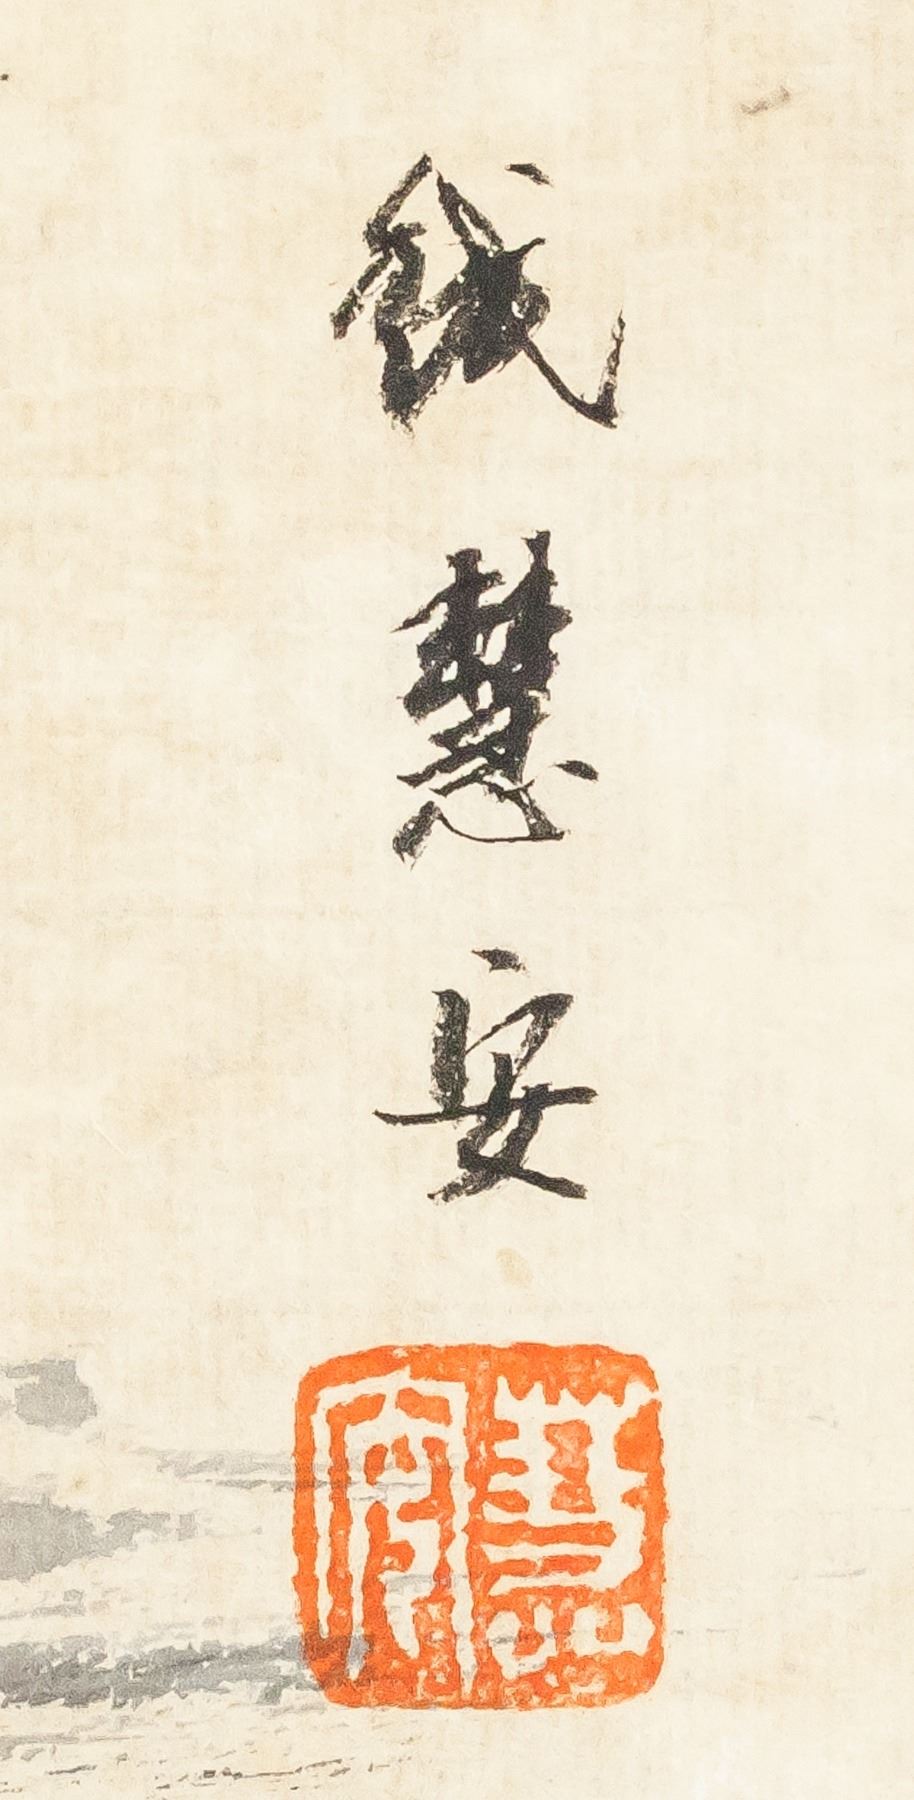 錢慧安
慧安